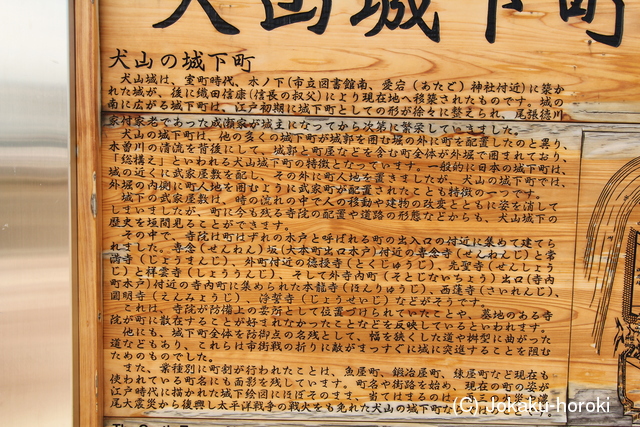 犬山城下町
犬山の城下町
犬山城は、室町時代、木ノ下(市立図書館南、愛宕(あたご)神社付近)に築か
れた城が、後に織田信康(信長の叔父)により現在地へ移築されたものです。城の
南に広がる城下町は、江戸初期に城下町としての形が徐々に整えられ、尾張徳川
家付家老であった成瀬家が城主になってから次第に繁栄していきました。
犬山の城下町は、他の多くの城下町が城郭を囲む堀の外に町を配置したのと異り、
木曽川の清流を背後にして、城郭と町屋などを含む町全体が外堀で囲まれており、
「総構え」といわれる犬山城下町の特徴となっています。一般的に日本の城下町は、
城の近くに武家屋敷を配し、その外に町人地を置きましたが、犬山の城下町では、
外堀の内側に町人地を囲むように武家町が配置されたことも特徴の一つです。
城下の武家屋敷は、時の流れの中で人の移動や建物の改変とともに姿を消して
しまいましたが、町に今も残る寺院の配置や道路の形態などからも、犬山城下の
歴史を垣間見ることができます。
その中で、寺院は町はずれの木戸と呼ばれる町の出入口の付近に集めて建てら
れました。専念(せんねん)坂(大本町出口木戸)付近の専念寺(せんねんじ)と常
満寺(じょうまんじ)、外町付近の徳授寺(とくじゅうじ)、先聖寺(せんしょう
じ)と祥雲寺(しょううんじ)、そして外寺内町(そとじないちょう)出口(寺内
町木戸)付近の寺内町に集められた本龍寺(ほんりゅうじ)、西蓮寺(さいれんじ)、
圓明寺(えんみょうじ)、浄誓寺(じょうせいじ)などがそうです。
これは、寺院が防備上の要所として位置づけられていたことや、墓地のある寺
院が町に散在することが好まれなかったことなどを反映しているといわれます。
他にも、城下町全体を防御点の名残として、幅を狭くした道や桝型に曲がった
道などもあり、これらは市街戦の折りに敵がまっすぐに城に突進することを阻む
ためのものでした。
また、業種別に町割が行われたことは、魚屋町、鍛冶屋町、練屋町など現在も
使われている町名にも面影を残しています。町名や街路を始め、現在の町の姿が
江戸時代に描かれた城下絵図にほぼそのまま、当てはまるのは、
尾大震災から復興し太平洋戦争の戦火をも免れた犬山の城下町な
(C) Jokaku-horoki